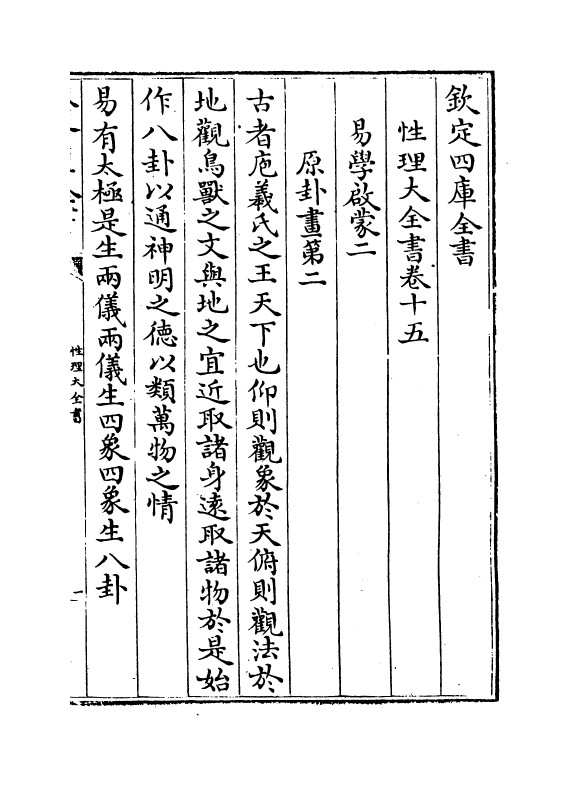 欽定四庫全書
性理大全書卷十五
易學啟蒙二
原卦畫第二
古者庖羲氏之王天下也仰則觀象於天俯則觀法於
地觀鳥獸之文與地之宜近取諸身遠取諸物於是始
作八卦以通神明之德以類萬物之情
易有太極是生兩儀兩儀生四象四象生八卦
性理大全書
一